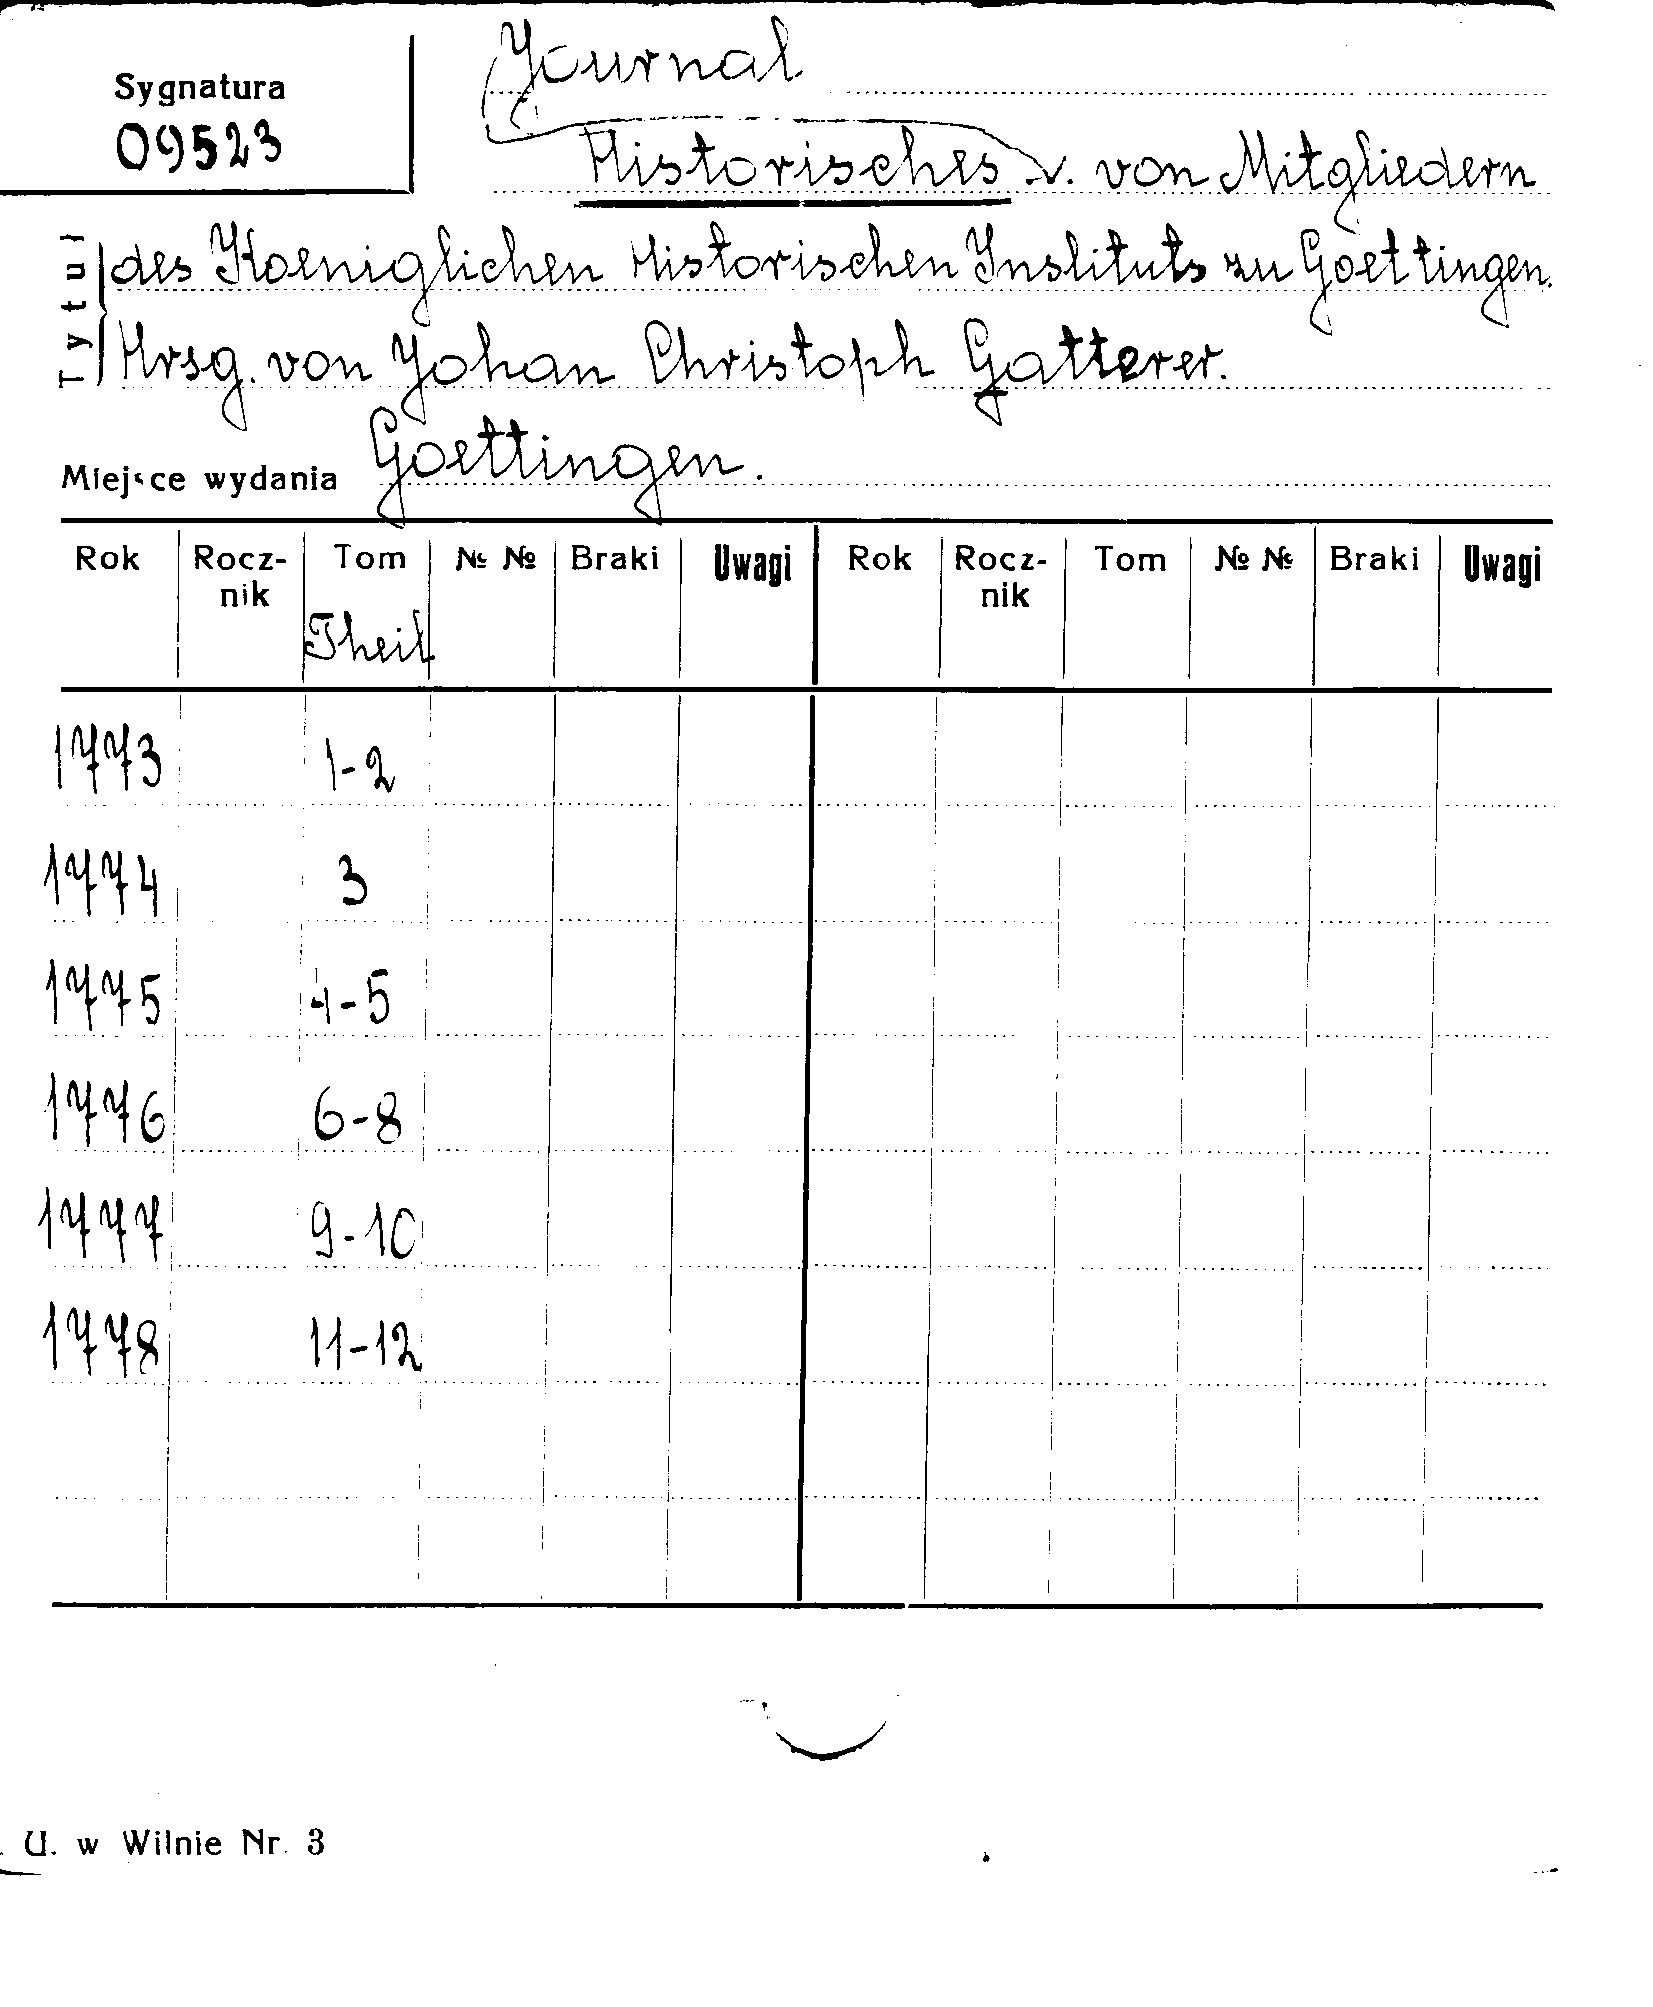 Sygnatura
09523
Journal
Historisches v. von Mitgliedern
Tytuł
des Koeniglichen Historischen Instituts zu Goettingen.
Hrsg. von Johan Christoph Gatterer.
Miejsce wydania Goettingen.
Rok Rocz-nik Tom № № Braki Uwagi Rok Rocz-nik Tom № № Braki Uwagi
Theil
1773 1-2
1774 3
1775 4-5
1776 6-8
1777 9-10
1778 11-12
U. w Wilnie Nr. 3